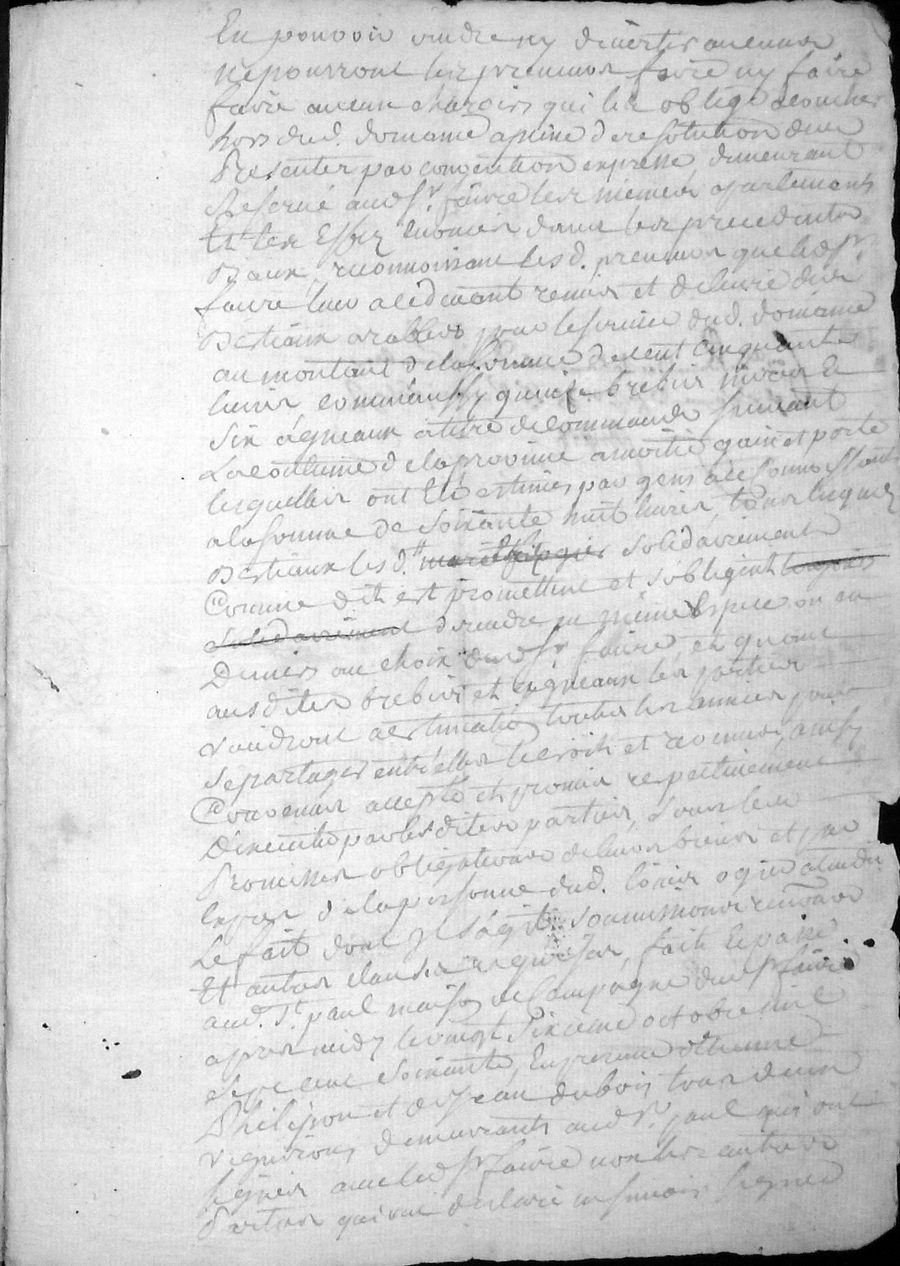 En pouvoir vendre ny divertir aucuns
ne pourront les preneurs faire ny faire
faire aucun charois qui les oblige a coucher
hors dud. domaine a peine de resolution des
presentes par convention expresse demeurant
reservé aud. Sr. faure les mêmes
Et les
Baux, reconnoissant lesd. preneurs que led. Sr.
faure leur a cÿ devant remis et delivré des
Bestiaux arables pour le service dud. domaine
au montant de la somme de cent cinquante
livres comme aussy quinze brebis mères &
six agneaux a titre de commande suivant
La coutume de la province a moitié gain et perte
lesquelles ont été estimés par gens a ce connoissants
a la somme de soixante huit livres, tous lesquels
Bestiaux les d. solidairement
Comme dit est promettent et s'obligent
solidairement de rendre en même espece ou en
Deniers au choix dud. Sr. faure, et quant
ausdites brebis et agneaux les parties
viendront a estimation toutes les années pour
se partager entr'elles le croit et revenus, ainsy
Convenu accepté et promis respectivement
D'executer par lesdites parties, sous les
Promesses obligations de leurs biens et par
corps de la personne dud. ogier attendu
Le fait dont il s'agit soumissions renonces
Et autres clauses requises, fait et passé
aud. St. paul maison de Campagne dud. Sr. faure
apres midy le vingt sixieme octobre mil
sept cent soixante, En presence d'Etienne
Philippon et de Jean dubois tous deux
vignerons demeurants aud. St. paul qui ont
signés avec led. Sr. faure non les autres
Parties qui ont declaré ne sçavoir signer